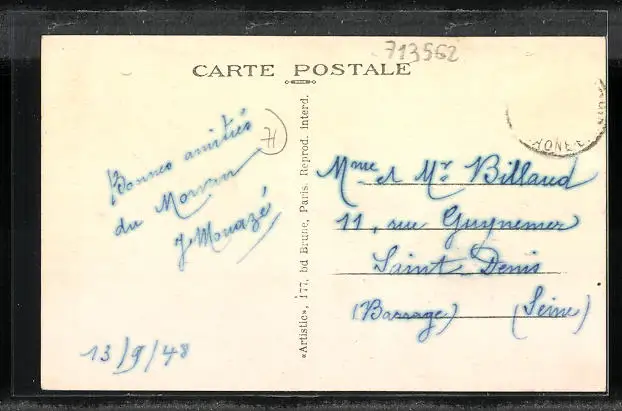 713562
CARTE POSTALE
Bonnes amitiés
du Morvan
J Mouazé
13/9/48
71
«Artistic», 177, bd Brune, Paris. Reprod. interd.
Mme et Mr Billaud
11, rue Guynemer
Saint Denis
(Barrage) (Seine)